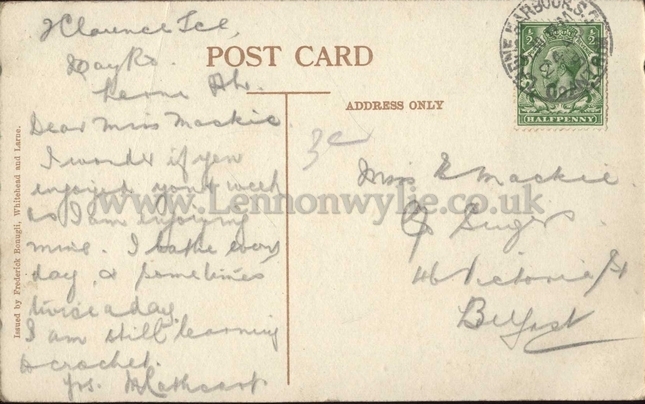 2 Clarence Tce,
Bay Rd.
Larne Hbr.
Dear Miss Mackie
I wonder if you
enjoyed your week
as I am enjoying
mine. I bathe every
day, & sometimes
twice a day.
I am still learning
to crochet.
Yrs. M Cathcart
POST CARD
ADDRESS ONLY
3c
Miss Mackie
46 Victoria St
Belfast
HALFPENNY
Issued by Frederick Bonugli, Whitehead and Larne.
www.Lennonwylie.co.uk